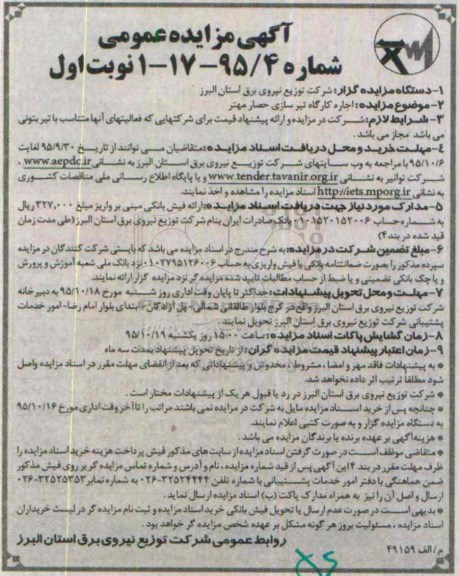 آگهی مزایده عمومی
شماره ۹۵/۴-۱۷-۱ نوبت اول
۱- دستگاه مزایده گزار: شرکت توزیع نیروی برق استان البرز
۲- موضوع مزایده: اجاره کارگاه تیر سازی حصار مهتر
۳- شرایط لازم: شرکت در مزایده و ارائه پیشنهاد قیمت برای شرکتهایی که فعالیتهای آنها متناسب با تیر بتونی
می باشد مجاز می باشد.
۴- مهلت خرید و محل دریافت اسناد مزایده: متقاضیان می توانند از تاریخ ۹۵/۹/۳۰ لغایت
۹۵/۱۰/۶ با مراجعه به وب سایتهای شرکت توزیع نیروی برق استان البرز به نشانی www.aepdc.ir،
شرکت توانیر به نشانی www.tender.tavanir.org.ir و یا پایگاه اطلاع رسانی ملی مناقصات کشوری
به نشانی http://iets.mporg.ir اسناد مزایده را مشاهده و اخذ نمایند.
۵- مدارک مورد نیاز جهت دریافت اسناد مزایده: ارائه فیش بانکی مبنی بر واریز مبلغ ۳۲۷,۰۰۰ ریال
به شماره حساب ۰۱۰۱۵۳۰۱۵۲۰۰۶ بانک صادرات ایران بنام شرکت توزیع نیروی برق استان البرز (طی مدت زمان
قید شده در بند ۴)
۶- مبلغ تضمین شرکت در مزایده: به شرح مندرج در اسناد مزایده می باشد که بایستی شرکت کنندگان در مزایده
سپرده مذکور را بصورت ضمانتنامه بانکی یا فیش واریزی به حساب ۰۱۰۲۷۹۵۱۲۶۰۰۶ نزد بانک ملی شعبه آموزش و پرورش
و یا چک بانکی تضمینی و یا ضبط از حساب مطالبات تایید شده مزایده گر نزد مزایده گزار ارائه نمایند.
۷- مهلت و محل تحویل پیشنهادات: حداکثر تا پایان وقت اداری روز شنبه مورخ ۹۵/۱۰/۱۸ به دبیر خانه
شرکت توزیع نیروی برق استان البرز واقع در کرج بلوار طالقانی شمالی- پل آزادگان - ابتدای بلوار امام رضا- امور خدمات
پشتیبانی شرکت توزیع نیروی برق استان البرز تحویل نمایند.
۸- زمان گشایش پاکات اسناد مزایده: ساعت ۱۵:۰۰ روز یکشنبه ۹۵/۱۰/۱۹
۹- زمان اعتبار پیشنهاد قیمت مزایده گران: از تاریخ تحویل پیشنهاد بمدت سه ماه
* به پیشنهادات فاقد مهر و امضا، مشروط، مخدوش و پیشنهاداتی که بعد از انقضای مهلت مقرر در اسناد مزایده واصل
شود مطلقاً ترتیب اثر داده نخواهد شد.
* شرکت توزیع نیروی برق استان البرز در رد یا قبول هر یک از پیشنهادات مختار است.
* چنانچه پس از خرید اسناد مزایده مایل به شرکت در مزایده نمی باشند مراتب را تا آخر وقت اداری مورخ ۹۵/۱۰/۱۶
به دستگاه مزایده گزار و به صورت کتبی اعلام نمایند.
* هزینه آگهی بر عهده برنده یا برندگان مزایده می باشد.
* متقاضی موظف است در صورت گرفتن اسناد مزایده از سایت های مذکور فیش پرداخت هزینه خرید اسناد مزایده را
ظرف مهلت مقرر در بند ۴ این آگهی پس از قید شماره مزایده، نام و آدرس و شماره تماس مزایده گر بر روی فیش مذکور
ضمن هماهنگی با دفتر امور خدمات پشتیبانی با شماره تلفن ۳۲۵۲۴۴۴۴-۰۲۶ به شماره نمابر ۳۲۵۲۵۳۵۳-۰۲۶
ارسال و اصل آن را نیز به همراه مدارک پاکت (ب) اسناد مزایده ارسال نماید.
* بدیهی است در صورت عدم ارسال یا تحویل فیش بانکی خرید اسناد مزایده و ثبت نام مزایده گر در لیست خریداران
اسناد مزایده، مسئولیت بروز هر گونه مشکل بر عهده شخص مزایده گر خواهد بود.
روابط عمومی شرکت توزیع نیروی برق استان البرز
م/ الف ۴۹۱۵۹